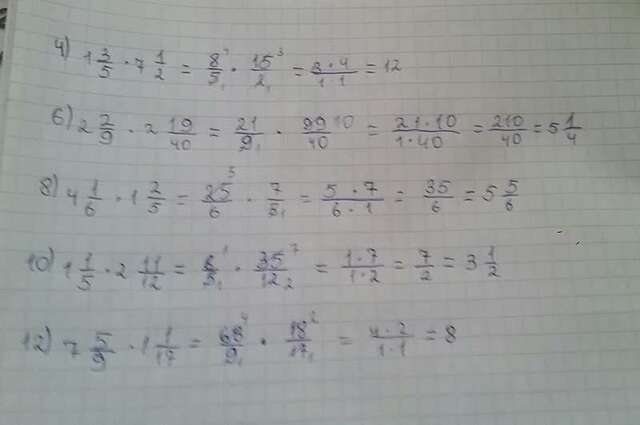 4) 1 3/5 · 7 1/2 = 8⁴/5₁ · 15³/2₁ = 3·4/1·1 = 12
6) 2 2/9 · 2 19/40 = 21/9₁ · 99 10/40 = 21·10/1·40 = 210/40 = 5 1/4
8) 4 1/6 · 1 2/5 = 25⁵/6 · 7/5₁ = 5·7/6·1 = 35/6 = 5 5/6
10) 1 1/5 · 2 11/12 = 6¹/5₁ · 35⁷/12₂ = 1·7/1·2 = 7/2 = 3 1/2
12) 7 5/9 · 1 1/17 = 68⁴/9₁ · 18²/17₁ = 4·2/1·1 = 8